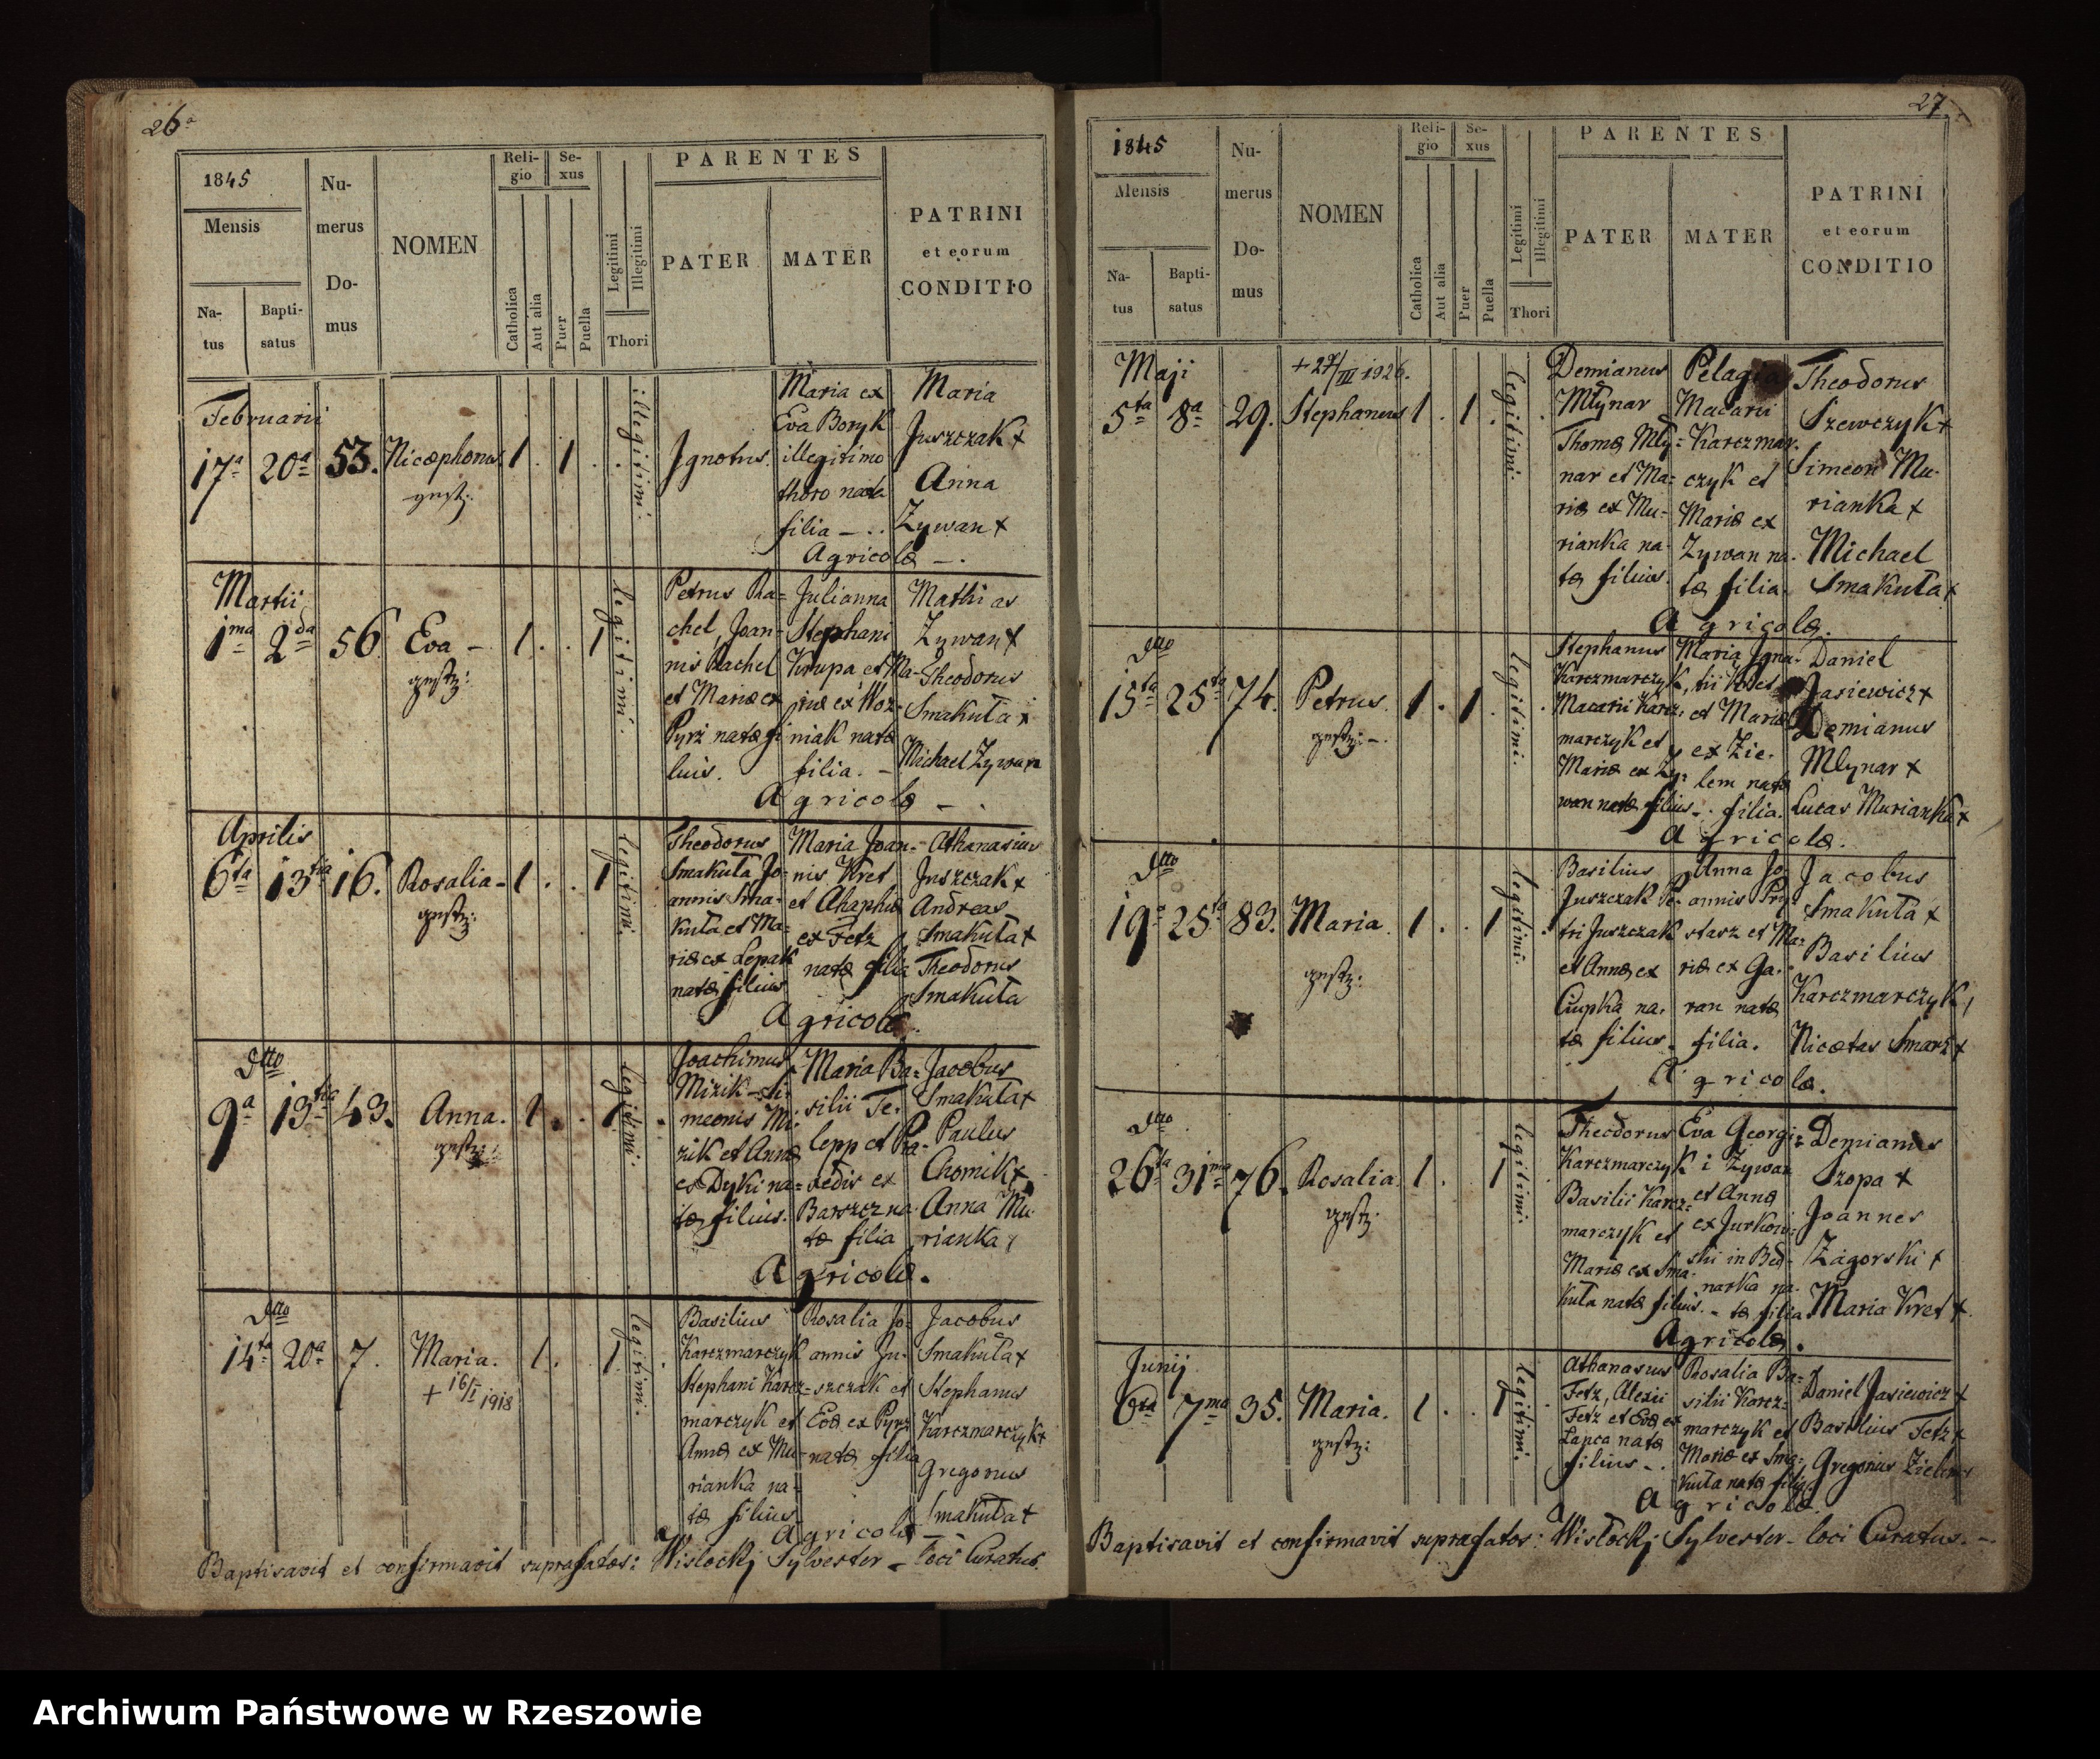 26ª
1845
Mensis
Na-
tus
Bapti-
satus
Nu-
merus
Do-
mus
NOMEN
Reli-
gio
Catholica
Aut alia
Se-
xus
Puer
Puella
Legitimi
Illegitimi
Thori
PARENTES
PATER
MATER
PATRINI
et eorum
CONDITIO
Februarii
17ª 20ª 53. Nicephorus 1 . 1 . .
illegitimi.
Ignotus.
Maria ex
Eva Boryk
illegitimo
thoro nata
filia — . .
Maria
Juszczak +
Anna
Zywan +
Agricolæ — .
Martii
1ma 2da 56 Eva — 1 . . 1
legitimi.
Petrus Ra=
chel, Joan=
nis Rachel
et Mariæ ex
Pyrz natæ fi
lius.
Julianna
Stephani
Krupa et Ma-
riæ ex Woz-
niak natæ
filia. —
Mathias
Zywan +
Theodorus
Smakuła +
Michael Zywan
Agricolæ — .
Aprilis
6ta 13tia 16. Rosalia - 1 . . 1
legitimi.
Theodorus
Smakuła Jo-
annis Sma-
kuła et Ma=
riæ ex Lepak
natæ filius
Maria Joan-
nis Kret
et Ahaphiæ
ex Fetz
natæ filia
Athanasius
Juszczak +
Andreas
Smakuła +
Theodorus
Smakuła
Agricolæ.
Dtto
9ª 13tia 43. Anna. 1 . . 1 .
legitimi.
Joachimus
Mizik Si-
meonis Mi-
zik et Annæ
ex Dyki na=
tæ filius.
Maria Ba=
silii Te-
lepp et Pa-
Barszcz na-
tæ filia
Jacobus
Smakuła +
Paulus
Chomik +
Anna Mu-
rianka
Agricolæ.
Dtto
14ta 20ª 7. Maria. 1 . . 1 .
+ 16/I 1918
legitimi.
Basilius
Karczmarczyk
Stephani Karcz=
marczyk et
Annæ ex Mu-
rianka na-
tæ filius
Rosalia Jo-
annis Ju-
szczak et
Evæ ex Pyrz
natæ filia
Jacobus
Smakuła +
Stephanus
Karczmarczyk +
Gregorius
Smakuła +
Agricolæ —
Baptisavit et confirmavit suprafatos: Wisłockj Sylvester — loci Curatus.
27.
1845
Mensis
Na-
tus
Bapti-
satus
Nu-
merus
Do-
mus
NOMEN
Reli-
gio
Catholica
Aut alia
Se-
xus
Puer
Puella
Legitimi
Illegitimi
Thori
PARENTES
PATER
MATER
PATRINI
et eorum
CONDITIO
Maji
+ 27/III 1926.
5ta 8ª 29. Stephanus 1 . 1 . .
legitimi.
Demianus
Młynar
Thomæ Mły=
nar et Ma=
riæ ex Mu-
rianka na-
tæ filius.
Pelagia
Macarii
Karczmar-
czyk et
Mariæ ex
Zywan na-
tæ filia.
Theodorus
Szewczyk +
Simeon Mu-
rianka +
Michael
Smakuła +
Agricolæ.
Dtto
15ta 25ta 74. Petrus. 1 . 1 . .
legitimi.
Stephanus
Karczmarczyk,
Macarii Karcz-
marczyk et
Mariæ ex Zy=
wan natæ filius.
Maria Igna-
tii
et Mariæ
ex Zie-
lem natæ
filia.
Daniel
Jasiewicz +
Demianus
Mlynar +
Lucas Murianka +
Agricolæ.
Dtto
19ª 25ta 83. Maria. 1 . . 1 .
legitimi.
Basilius
Juszczak Pe-
tri Juszczak
et Annæ ex
Ciupka na-
tæ filius.
Anna Jo-
annis Pry-
starz et Ma=
riæ ex Ga-
ran natæ
filia.
Jacobus
Smakuła +
Basilius
Karczmarczyk,
Nicetas Smarz +
Agricolæ.
Dtto
26ta 31ma 76. Rosalia. 1 . . 1
legitimi.
Theodorus
Karczmarczyk
Basilii Karcz=
marczyk et
Mariæ ex Sma-
kuła natæ filius. —
Eva Georgi=
i Zywan
et Annæ
ex Jurkow-
ski in Bed-
narka na-
tæ filia
Demianus
Szopa +
Joannes
Zagorski +
Maria Kret +
Agricolæ.
Junij
6ta 7ma 35. Maria. 1 . . 1
legitimi.
Athanasius
Fetz, Alexii
Fetz et Evæ ex
Lapca natæ
filius — .
Rosalia Ba=
silii Karcz=
marczyk et
Mariæ ex Sma=
kuła natæ filia
Daniel Jasiewicz +
Basilius Fetz +
Gregorius
Agricolæ.
Baptisavit et confirmavit suprafatos: Wisłockj Sylvester - loci Curatus. —
Archiwum Państwowe w Rzeszowie